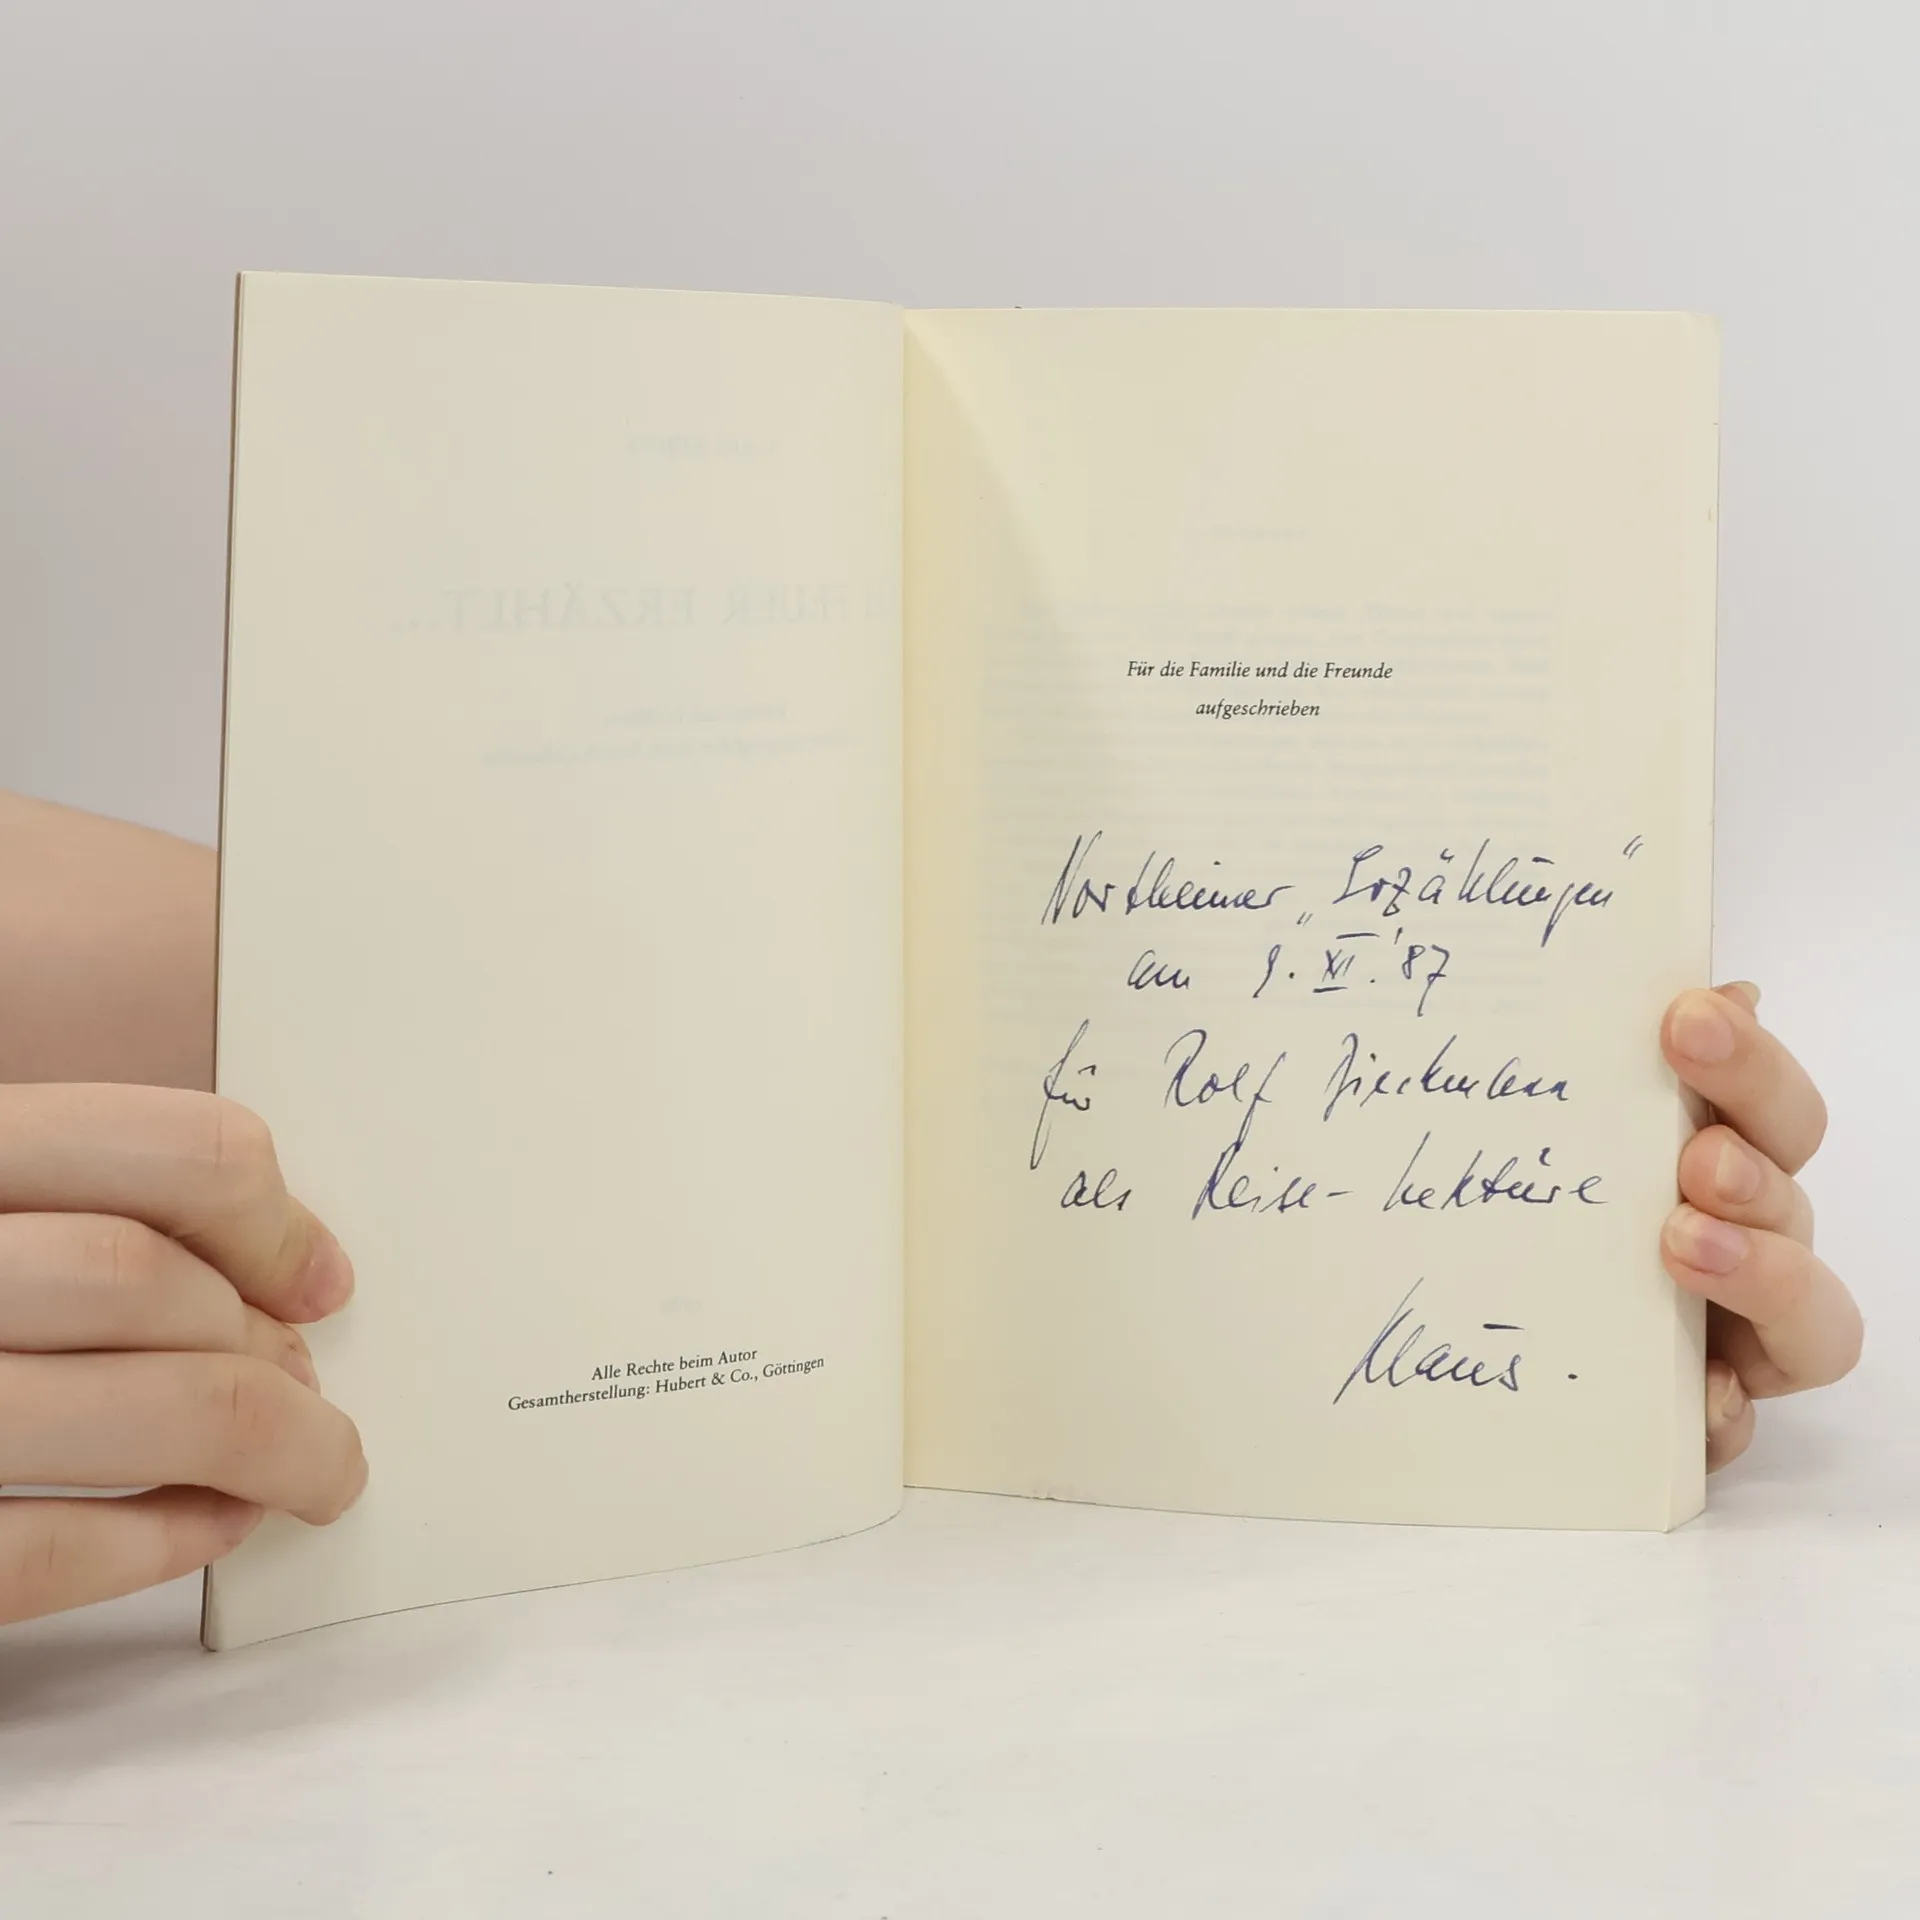 Alle Rechte beim Autor
Gesamtherstellung: Hubert & Co., Göttingen
Für die Familie und die Freunde
aufgeschrieben
Northeimer „Erzählungen“
am 9. XI. '87
für Rolf Zieckmann
als Reise-Lektüre
Klaus.